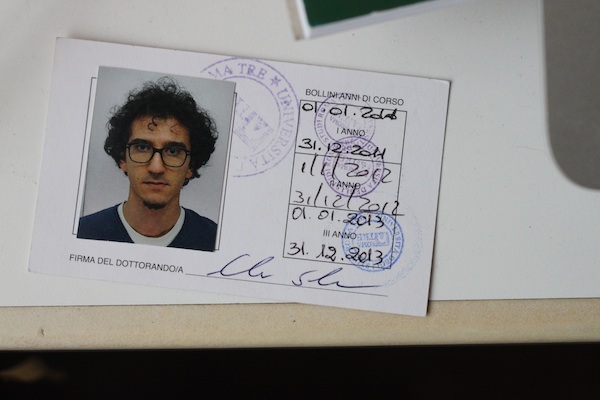 MA TRE ★ UNIVERSITA
BOLLINI ANNI DI CORSO
01.01.2011
I ANNO
31.12.2011
1/1/2012
ANNO
31/12/2012
01.01.2013
III ANNO
31.12.2013
FIRMA DEL DOTTORANDO/A